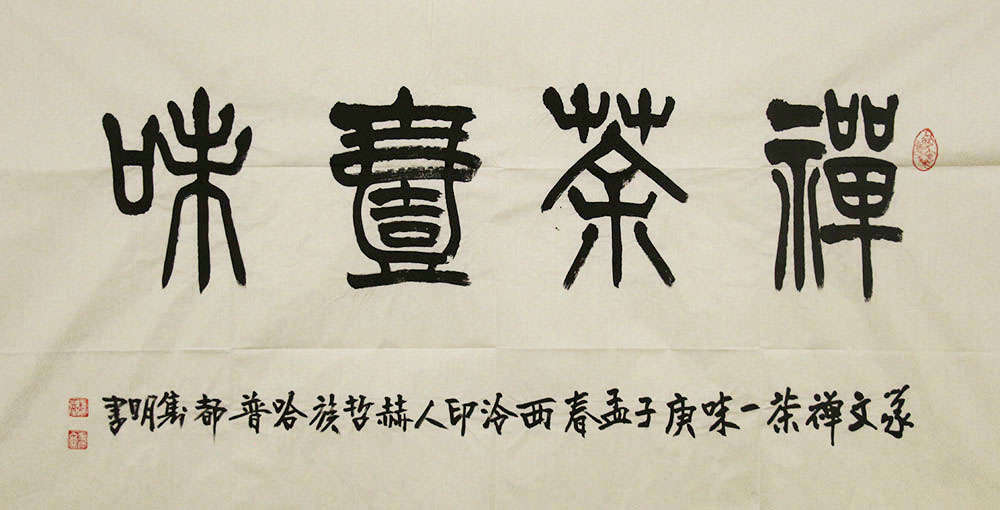 禪茶壹味
篆文禅茶一味庚子孟春西泠印人赫哲族哈普都隽明書